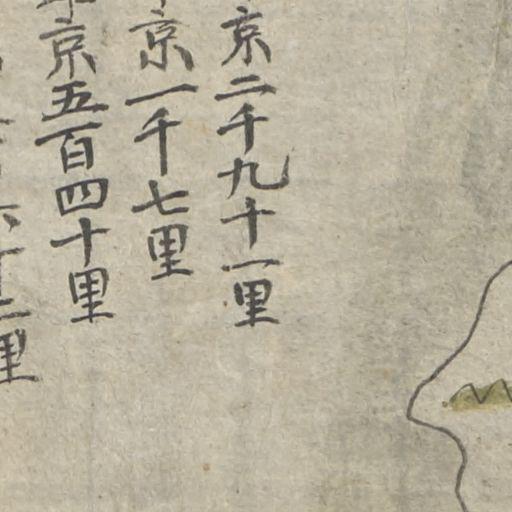 京二千九十一里
京一千七里
京五百四十里
六十二里